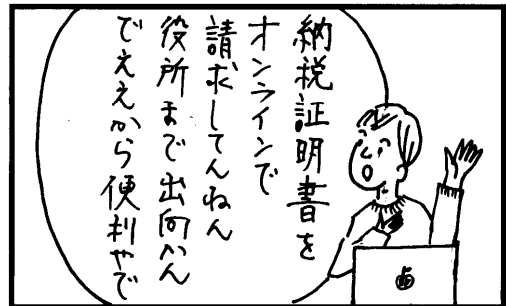 納税証明書を
オンラインで
請求してんねん
役所まで出向かん
でええから便利やで
歯